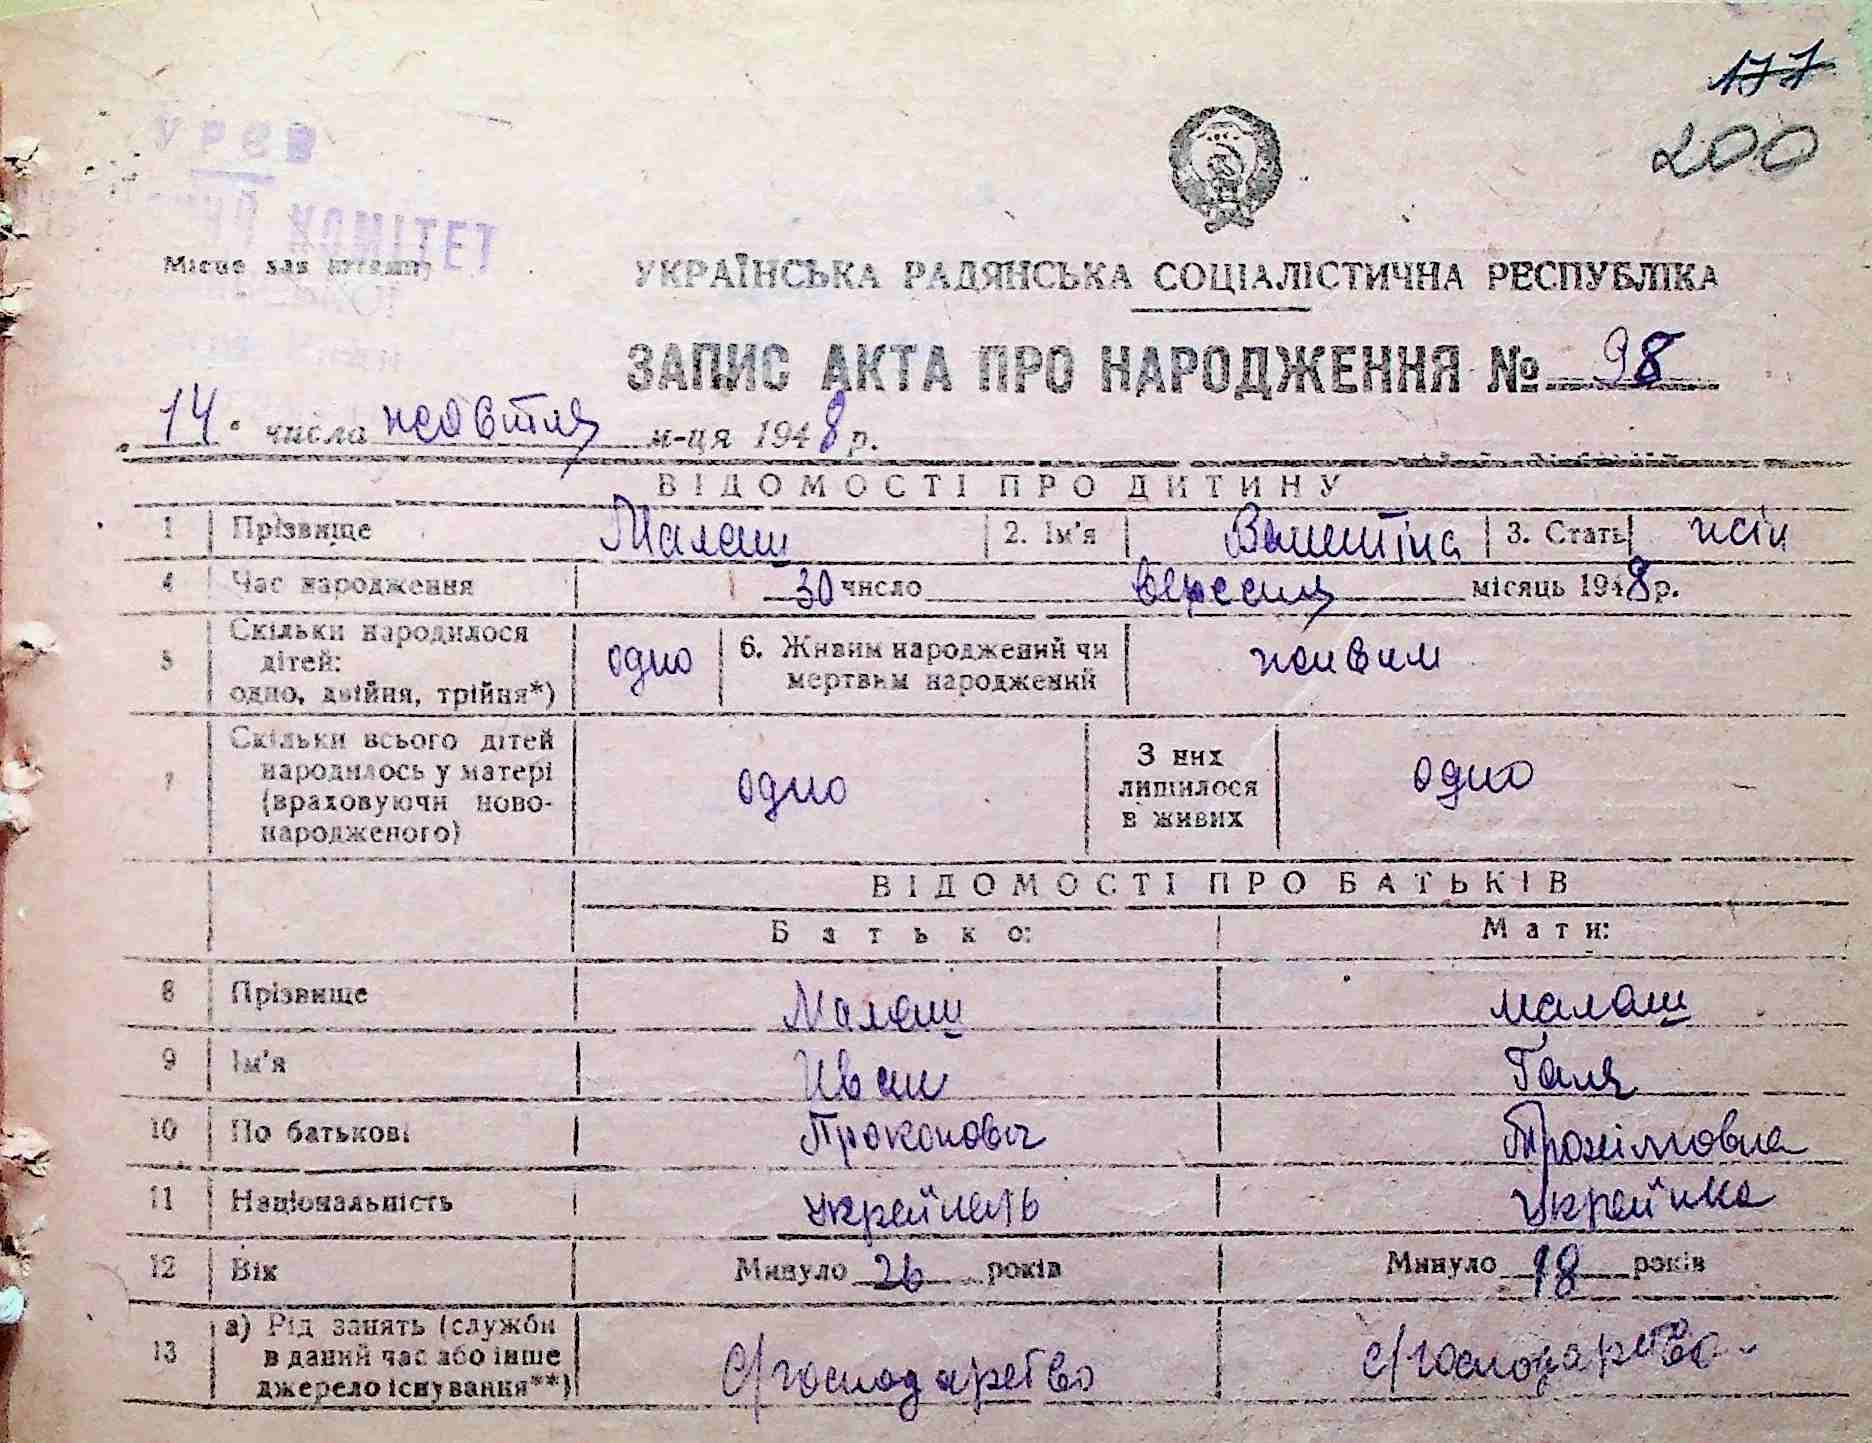 177
200
УРСР
КОМІТЕТ
Місце для штампу
УКРАЇНСЬКА РАДЯНСЬКА СОЦІАЛІСТИЧНА РЕСПУБЛІКА
ЗАПИС АКТА ПРО НАРОДЖЕННЯ № 98
„14" числа жовтня м-ця 1948 р.
ВІДОМОСТІ ПРО ДИТИНУ
1 Прізвище Малаш 2. Ім'я Валентіна 3. Стать жін
4 Час народження 30 число вересня місяць 1948 р.
5 Скільки народилося дітей: одно, двійня, трійня*) одно 6. Живим народжений чи мертвим народжений живим
7 Скільки всього дітей народилось у матері (враховуючи новонародженого) одно З них лишилося в живих одно
ВІДОМОСТІ ПРО БАТЬКІВ
Батько: Мати:
8 Прізвище Малаш Малаш
9 Ім'я Иван Галя
10 По батькові Прокопович Трохімовна
11 Національність Українець Українка
12 Вік Минуло 26 років Минуло 18 років
13 а) Рід занять (служби в даний час або інше джерело існування**) С/господарство С/господарство